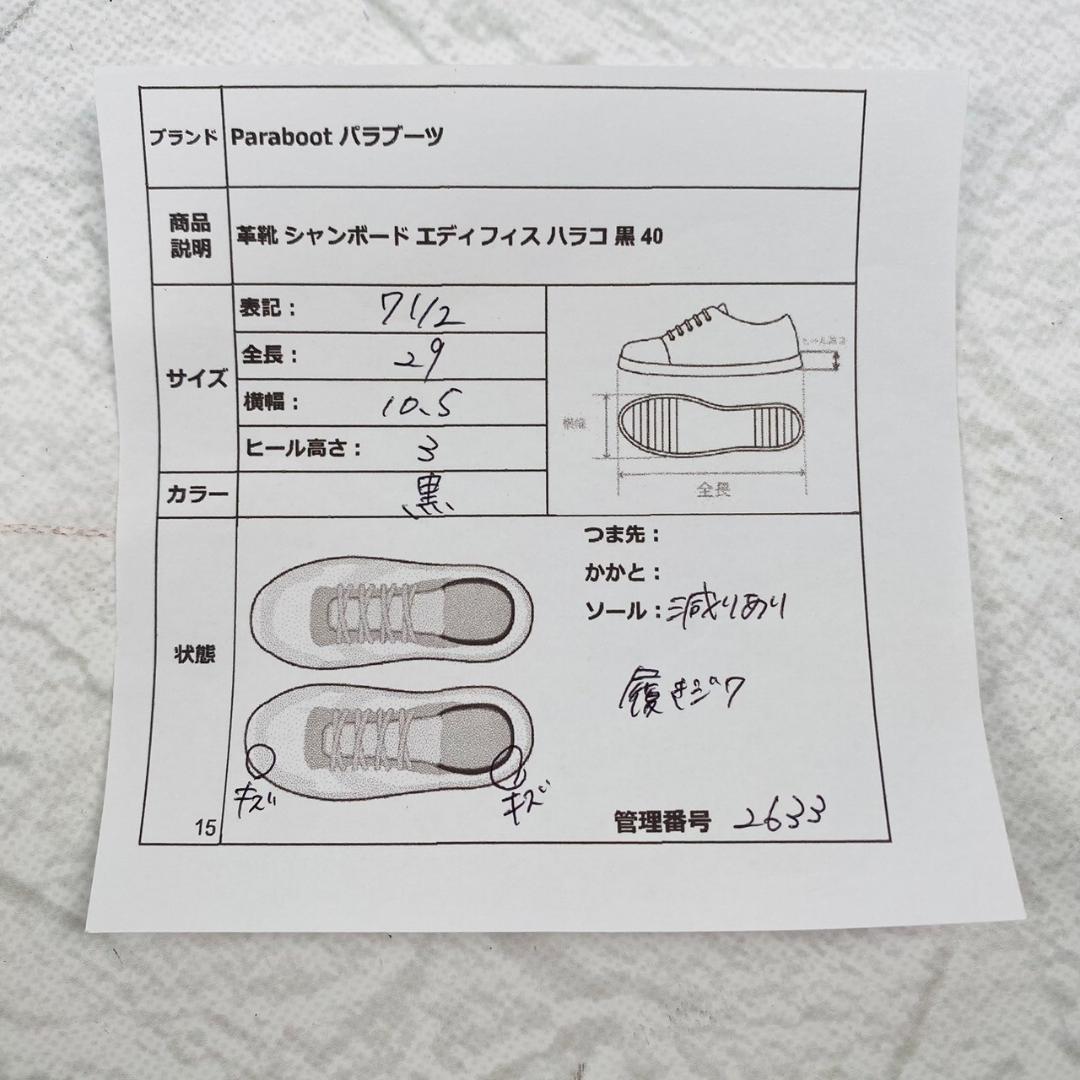 ブランド Paraboot パラブーツ
商品説明 革靴 シャンボード エディフィス ハラコ 黒 40
サイズ
表記： 7 1/2
全長： 29
横幅： 10.5
ヒール高さ： 3
ヒール高さ
横幅
全長
カラー 黒
状態
つま先：
かかと：
ソール：減りあり
履きジワ
キズ
キズ
管理番号 2633
15